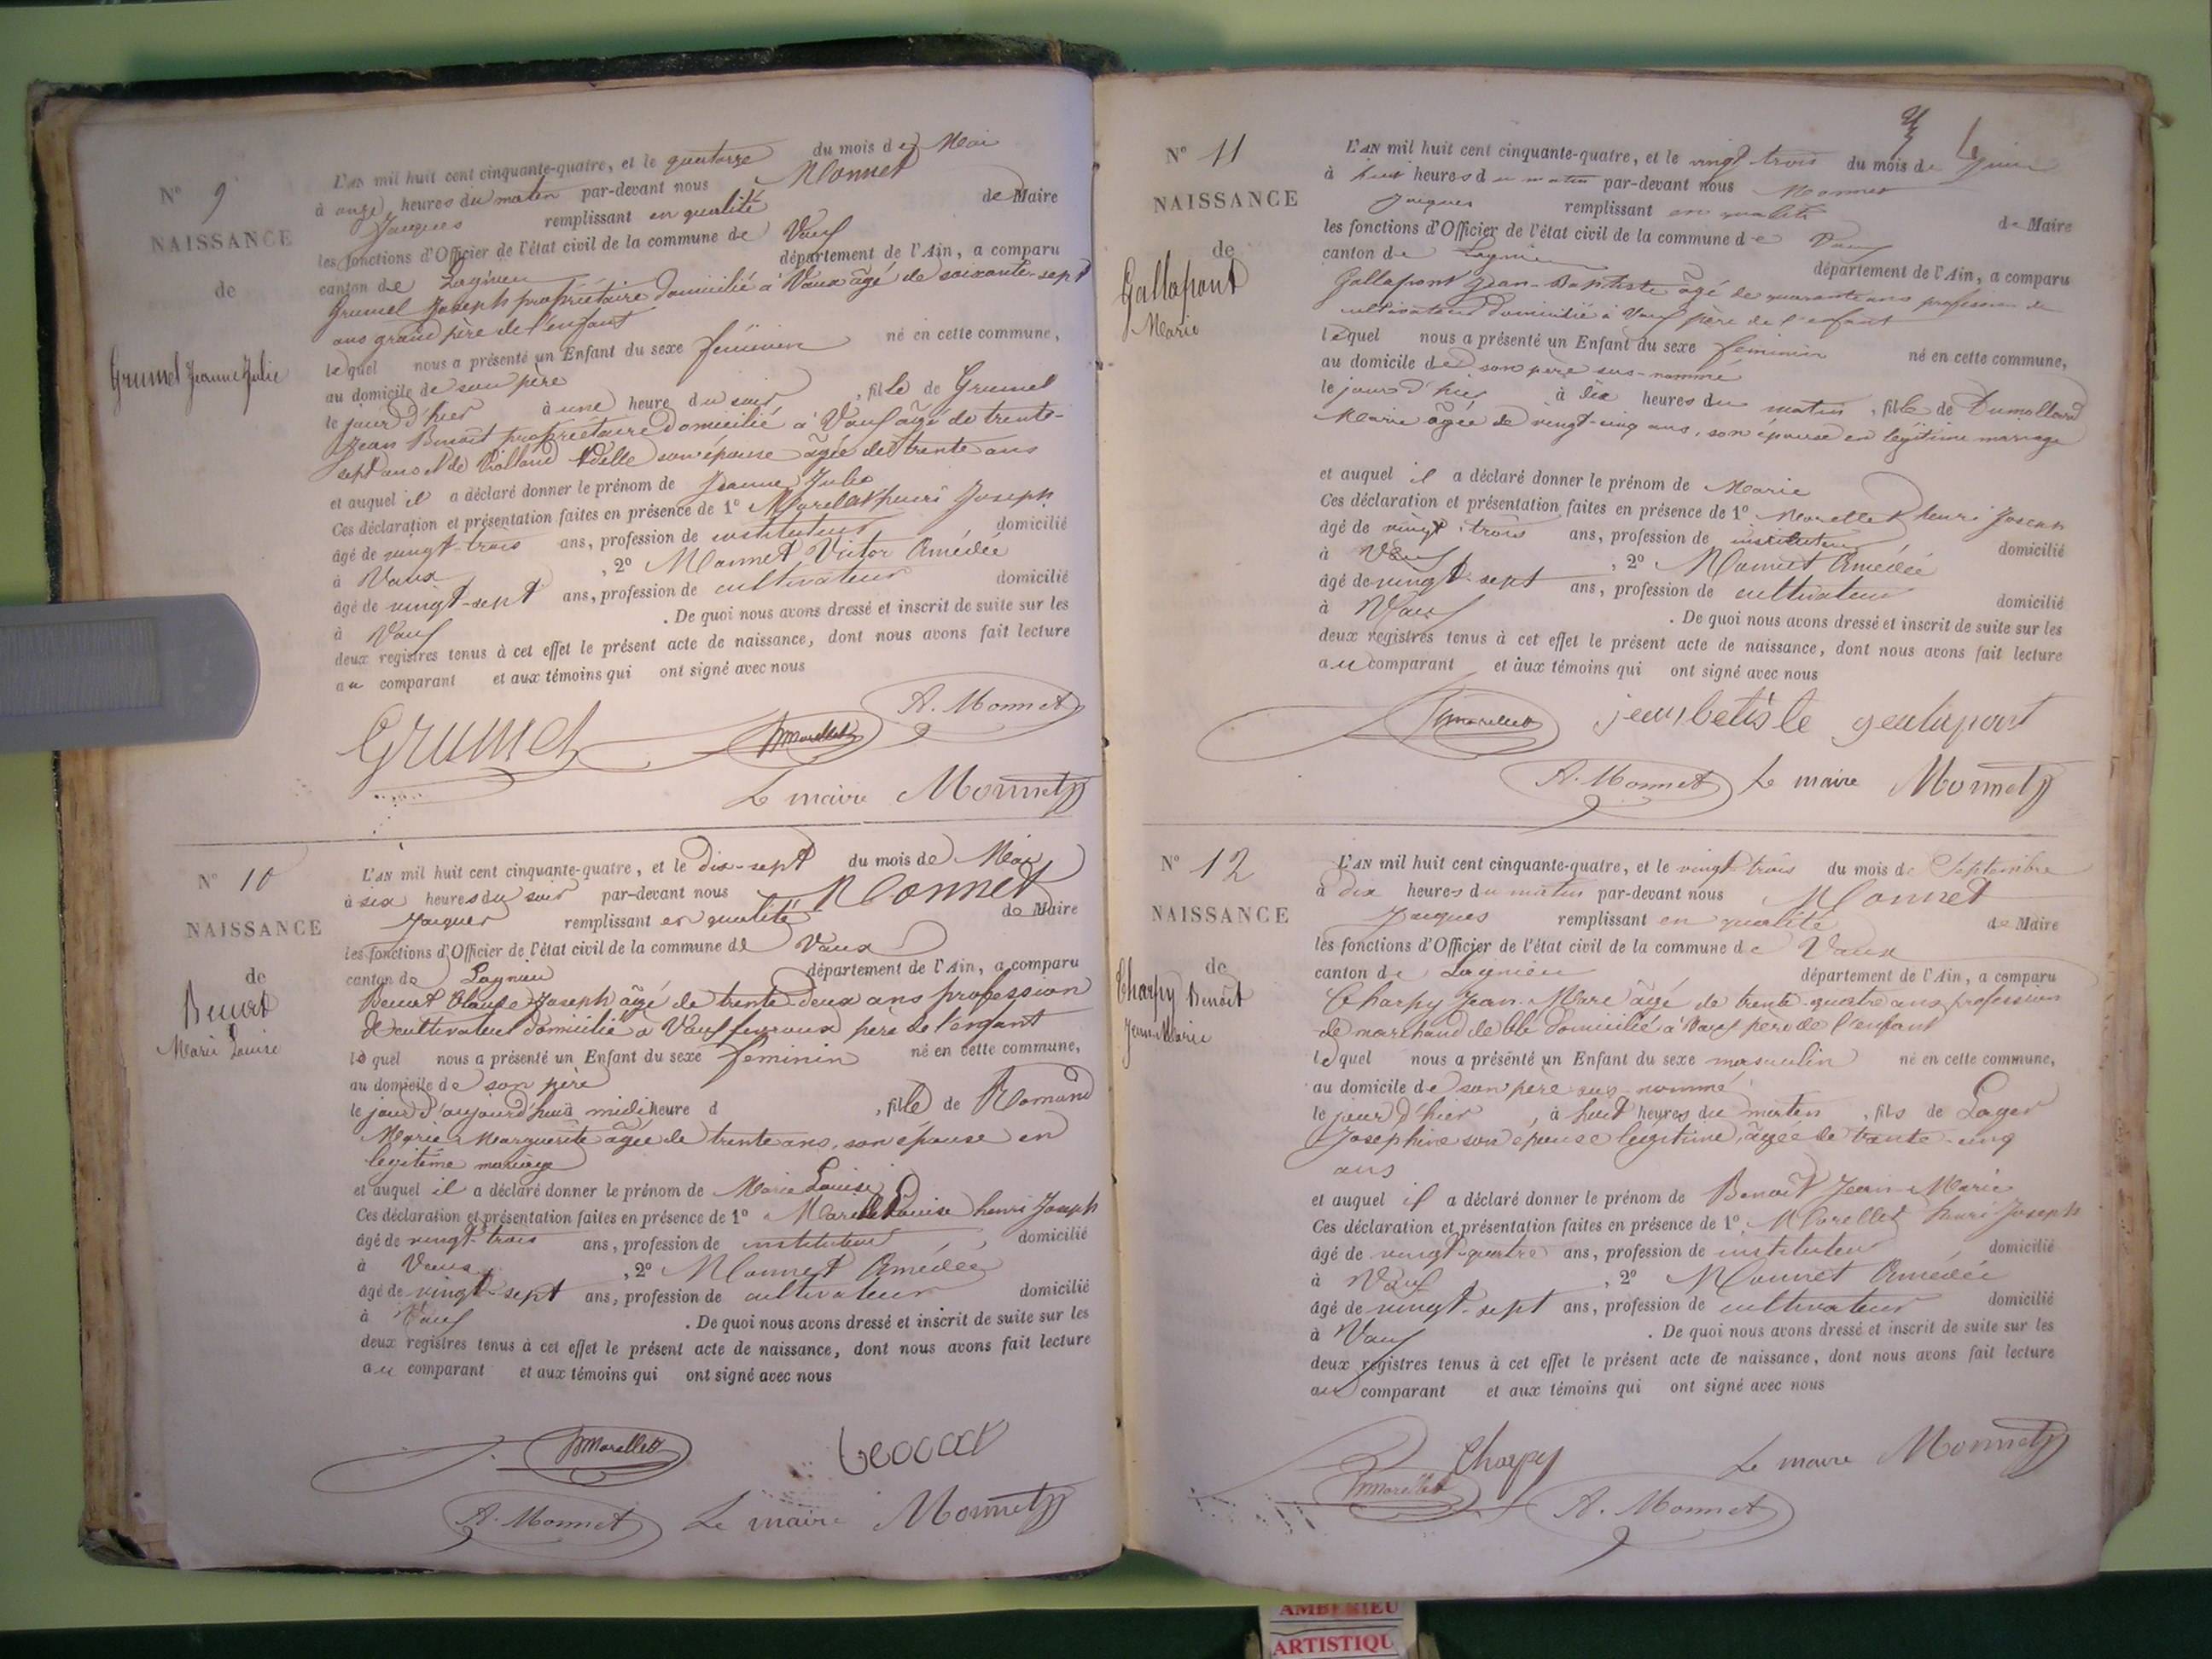 N° 9
NAISSANCE
de
Grumel Jeanne Julie
L'AN mil huit cent cinquante-quatre, et le quatorze du mois de Mai
à onze heures du matin par-devant nous Monnet
Jacques remplissant en qualité de Maire
les fonctions d'Officier de l'état civil de la commune de Vaux
canton de Lagnieu département de l'Ain, a comparu
Grumel Joseph propriétaire domicilié à Vaux âgé de soixante-sept
ans grand père de l'enfant
lequel nous a présenté un Enfant du sexe féminin né en cette commune,
au domicile de son père
le jour d'hier à une heure du soir, fille de Grumel
Jean Benoit propriétaire domicilié à Vaux âgé de trente-
sept ans et de son épouse âgée de trente ans
et auquel il a déclaré donner le prénom de Jeanne Julie
Ces déclaration et présentation faites en présence de 1° Morellet henri Joseph
âgé de vingt-trois ans, profession de instituteur domicilié
à Vaux, 2° Monnet Victor Amédée
âgé de vingt-sept ans, profession de cultivateur domicilié
à Vaux. De quoi nous avons dressé et inscrit de suite sur les
deux registres tenus à cet effet le présent acte de naissance, dont nous avons fait lecture
au comparant et aux témoins qui ont signé avec nous
Grumel Morellet A. Monnet
Le maire Monnet
N° 10
NAISSANCE
de
Benoit
Marie Louise
L'AN mil huit cent cinquante-quatre, et le dix-sept du mois de Mai
à six heures du soir par-devant nous Monnet
Jacques remplissant en qualité de Maire
les fonctions d'Officier de l'état civil de la commune de Vaux
canton de Lagnieu département de l'Ain, a comparu
Benoit Claude Joseph âgé de trente-deux ans profession
de cultivateur domicilié à Vaux fevroux père de l'enfant
lequel nous a présenté un Enfant du sexe féminin né en cette commune,
au domicile de son père
le jour d'aujourd'hui à midi heure d, fille de Romand
Marie Marguerite âgée de trente ans, son épouse en
legitime mariage
et auquel il a déclaré donner le prénom de Marie Louise
Ces déclaration et présentation faites en présence de 1° henri Joseph
âgé de vingt-trois ans, profession de instituteur domicilié
à Vaux, 2° Monnet Amédée
âgé de vingt-sept ans, profession de cultivateur domicilié
à Vaux. De quoi nous avons dressé et inscrit de suite sur les
deux registres tenus à cet effet le présent acte de naissance, dont nous avons fait lecture
au comparant et aux témoins qui ont signé avec nous
Morellet
A. Monnet Le maire Monnet
N° 11
NAISSANCE
de
Gallapont
Marie
L'AN mil huit cent cinquante-quatre, et le vingt-trois du mois de Juin
à huit heures du matin par-devant nous Monnet
Jacques remplissant en qualité de Maire
les fonctions d'Officier de l'état civil de la commune de Vaux
canton de Lagnieu département de l'Ain, a comparu
Gallapont Jean-Baptiste âgé de quarante ans profession de
cultivateur domicilié à Vaux père de l'enfant
lequel nous a présenté un Enfant du sexe féminin né en cette commune,
au domicile de son père sus-nommé
le jour d'hier à dix heures du matin, fille de Dumollard
Marie âgée de vingt-cinq ans, son épouse en légitime mariage
et auquel il a déclaré donner le prénom de Marie
Ces déclaration et présentation faites en présence de 1° Morellet henri Joseph
âgé de vingt-trois ans, profession de instituteur domicilié
à Vaux, 2° Monnet Amédée
âgé de vingt-sept ans, profession de cultivateur domicilié
à Vaux. De quoi nous avons dressé et inscrit de suite sur les
deux registres tenus à cet effet le présent acte de naissance, dont nous avons fait lecture
au comparant et aux témoins qui ont signé avec nous
Morellet jeanbetiste
A. Monnet Le maire Monnet
N° 12
NAISSANCE
de
Charpy Benoît
Jean-Marie
L'AN mil huit cent cinquante-quatre, et le vingt-trois du mois de Septembre
à dix heures du matin par-devant nous Monnet
Jacques remplissant en qualité de Maire
les fonctions d'Officier de l'état civil de la commune de Vaux
canton de Lagnieu département de l'Ain, a comparu
Charpy Jean-Marie âgé de trente-quatre ans profession
de marchand de blé domicilié à Vaux père de l'enfant
lequel nous a présenté un Enfant du sexe masculin né en cette commune,
au domicile de son père sus-nommé
le jour d'hier, à huit heures du matin, fils de Lager
Josephine son épouse légitime, âgée de trente-cinq
ans
et auquel il a déclaré donner le prénom de Benoît Jean-Marie
Ces déclaration et présentation faites en présence de 1° Morellet henri Joseph
âgé de vingt-quatre ans, profession de instituteur domicilié
à Vaux, 2° Monnet Amédée
âgé de vingt-sept ans, profession de cultivateur domicilié
à Vaux. De quoi nous avons dressé et inscrit de suite sur les
deux registres tenus à cet effet le présent acte de naissance, dont nous avons fait lecture
au comparant et aux témoins qui ont signé avec nous
Charpy Le maire Monnet
Morellet A. Monnet
AMBERIEU
ARTISTIQU